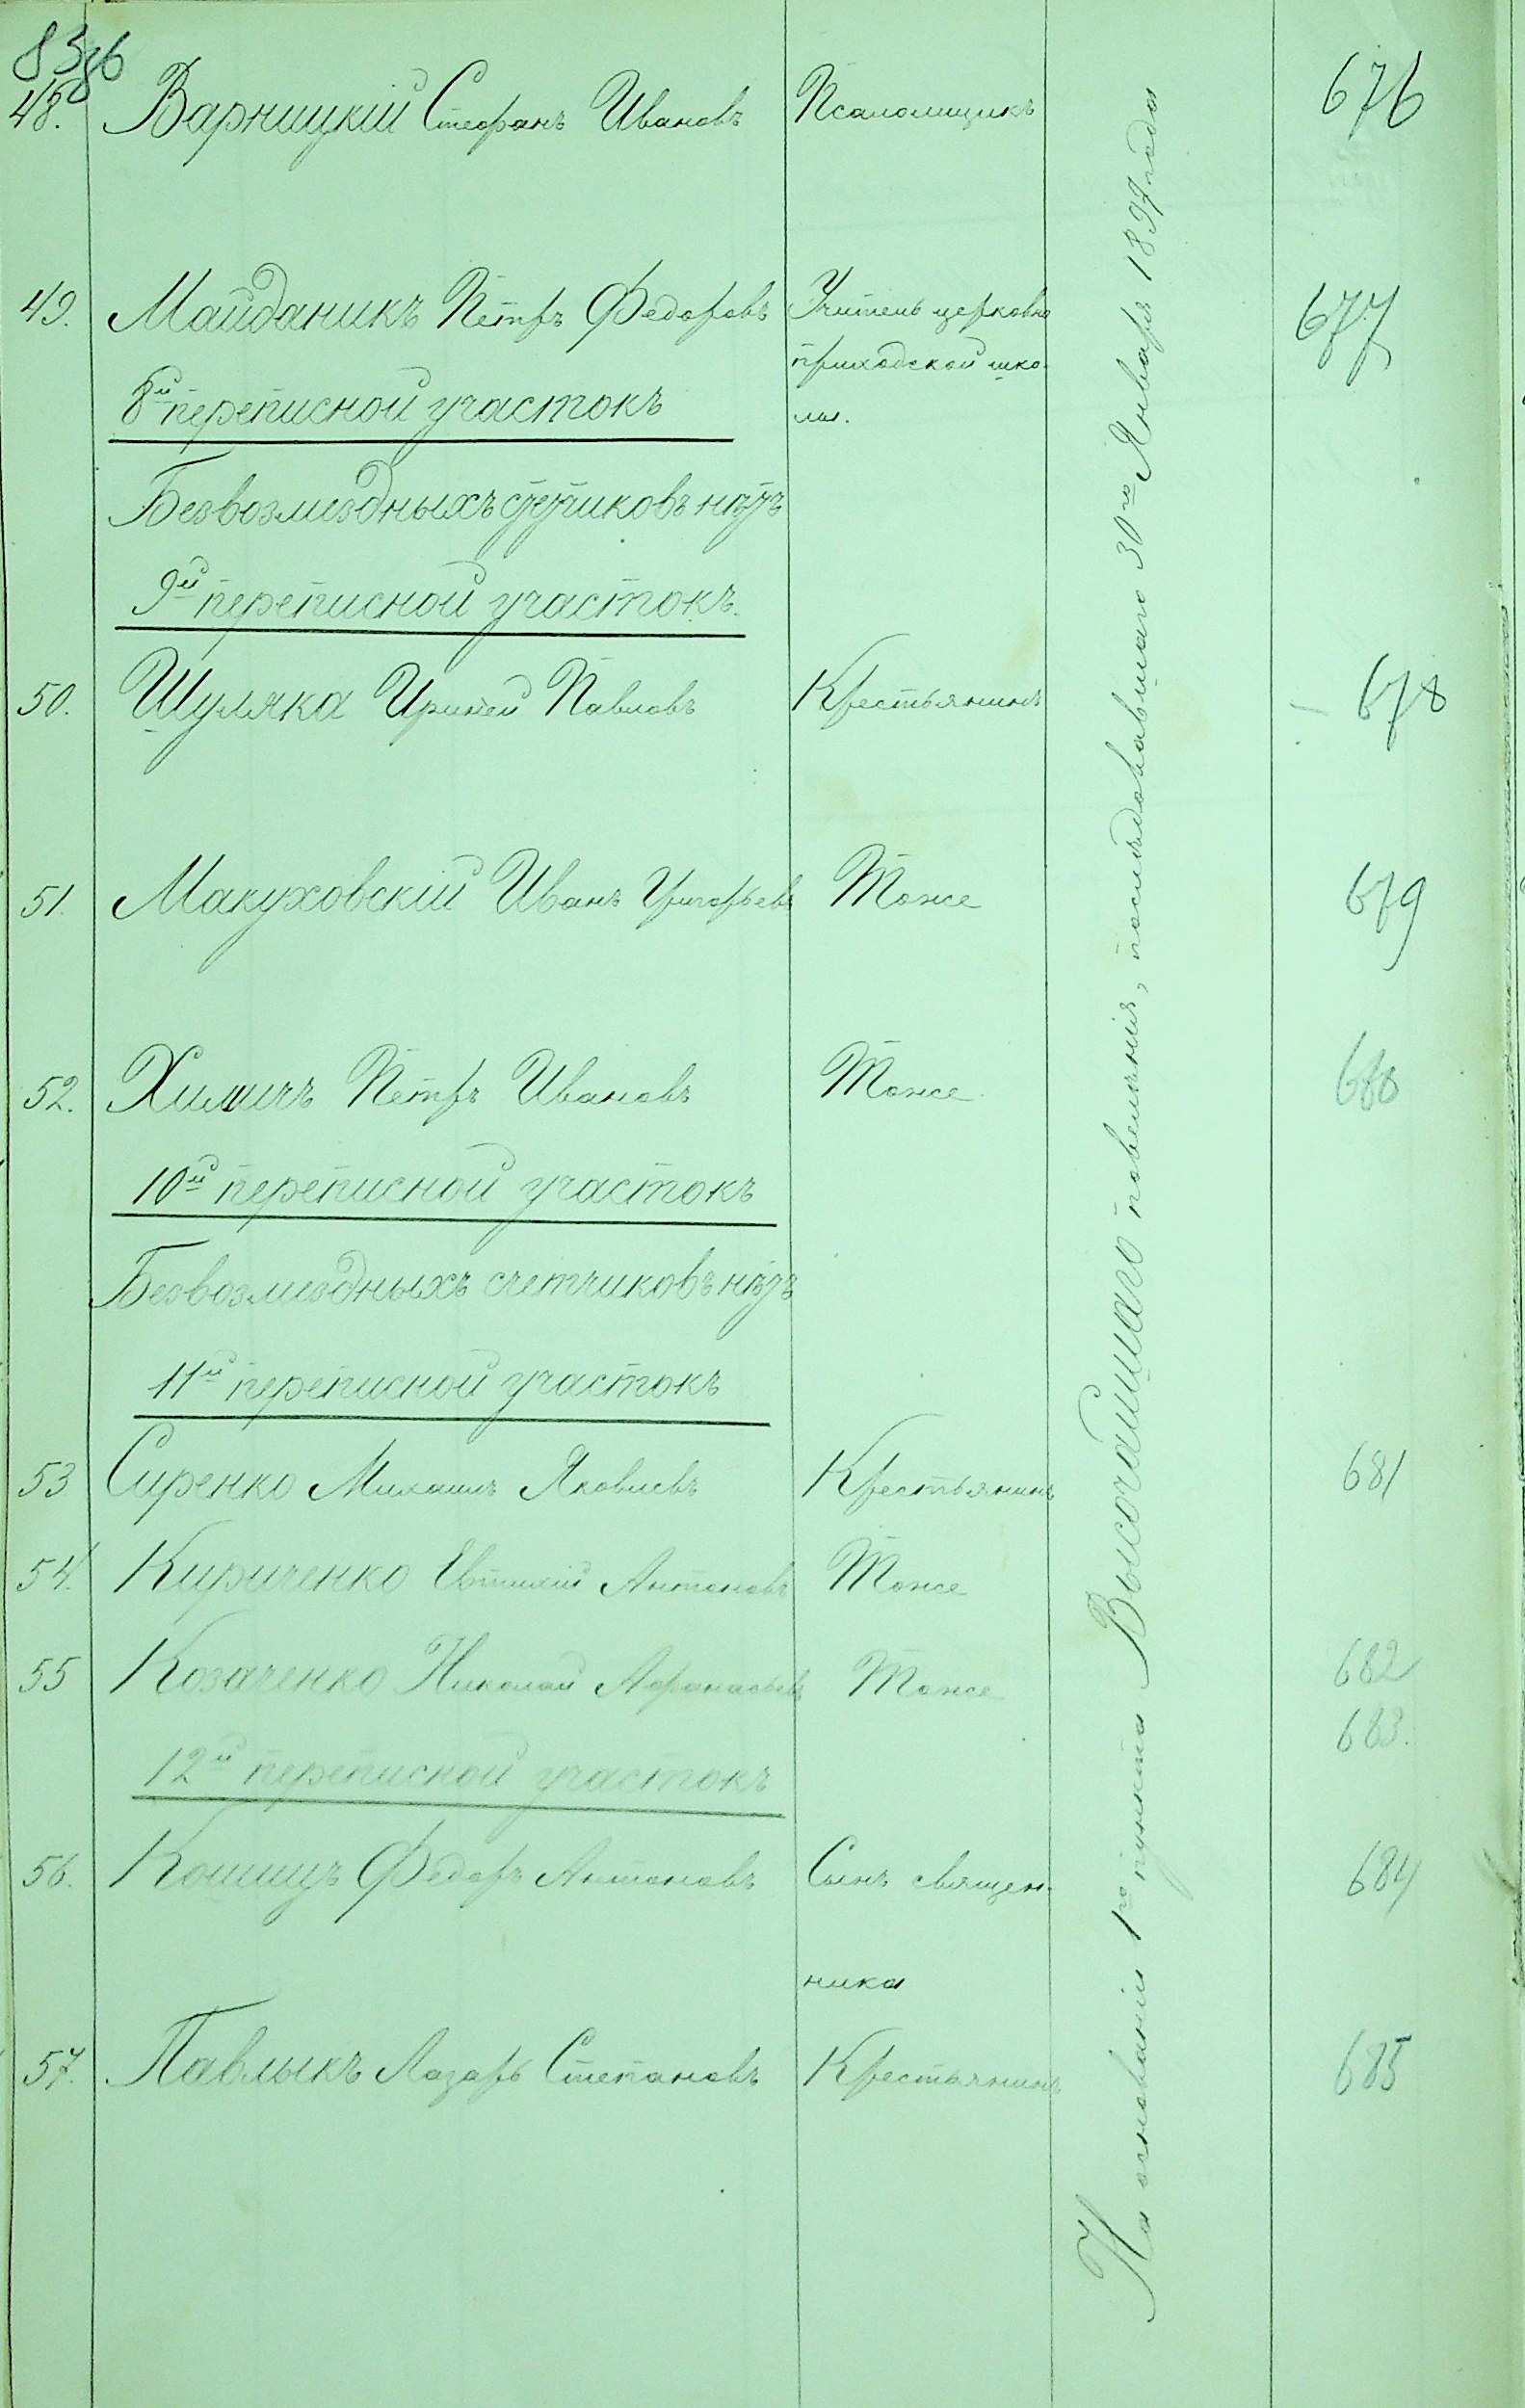 48. Варницкій Стефанъ Ивановъ Псаломщикъ 676
49. Майданикъ Петръ Федоровъ Учитель церковно 677
приходской шко-
8й переписной участокъ лы.
Безвозмездныхъ счетчиковъ нѣтъ
9й переписной участокъ.
50. Шуляка Ириней Павловъ Крестьянинъ 678
51. Макуховскій Иванъ Григорьевъ Тоже 679
52. Химичъ Петръ Ивановъ Тоже 680
10й переписной участокъ
Безвозмездныхъ счетчиковъ нѣтъ
11й переписной участокъ
53 Сиренко Михаилъ Яковлевъ Крестьянинъ 681
54. Кириченко Евтихій Антоновъ Тоже
55 Козаченко Николай Афанасьевъ Тоже 682
683.
12й переписной участокъ
56. Кошицъ Федоръ Антоновъ Сынъ священ- 684
ника
57. Павлыкъ Лазарь Степановъ Крестьянинъ 685
На основаніи 1го пункта Высочайшаго повелѣнія, послѣдовавшаго 30го Января 1897 года